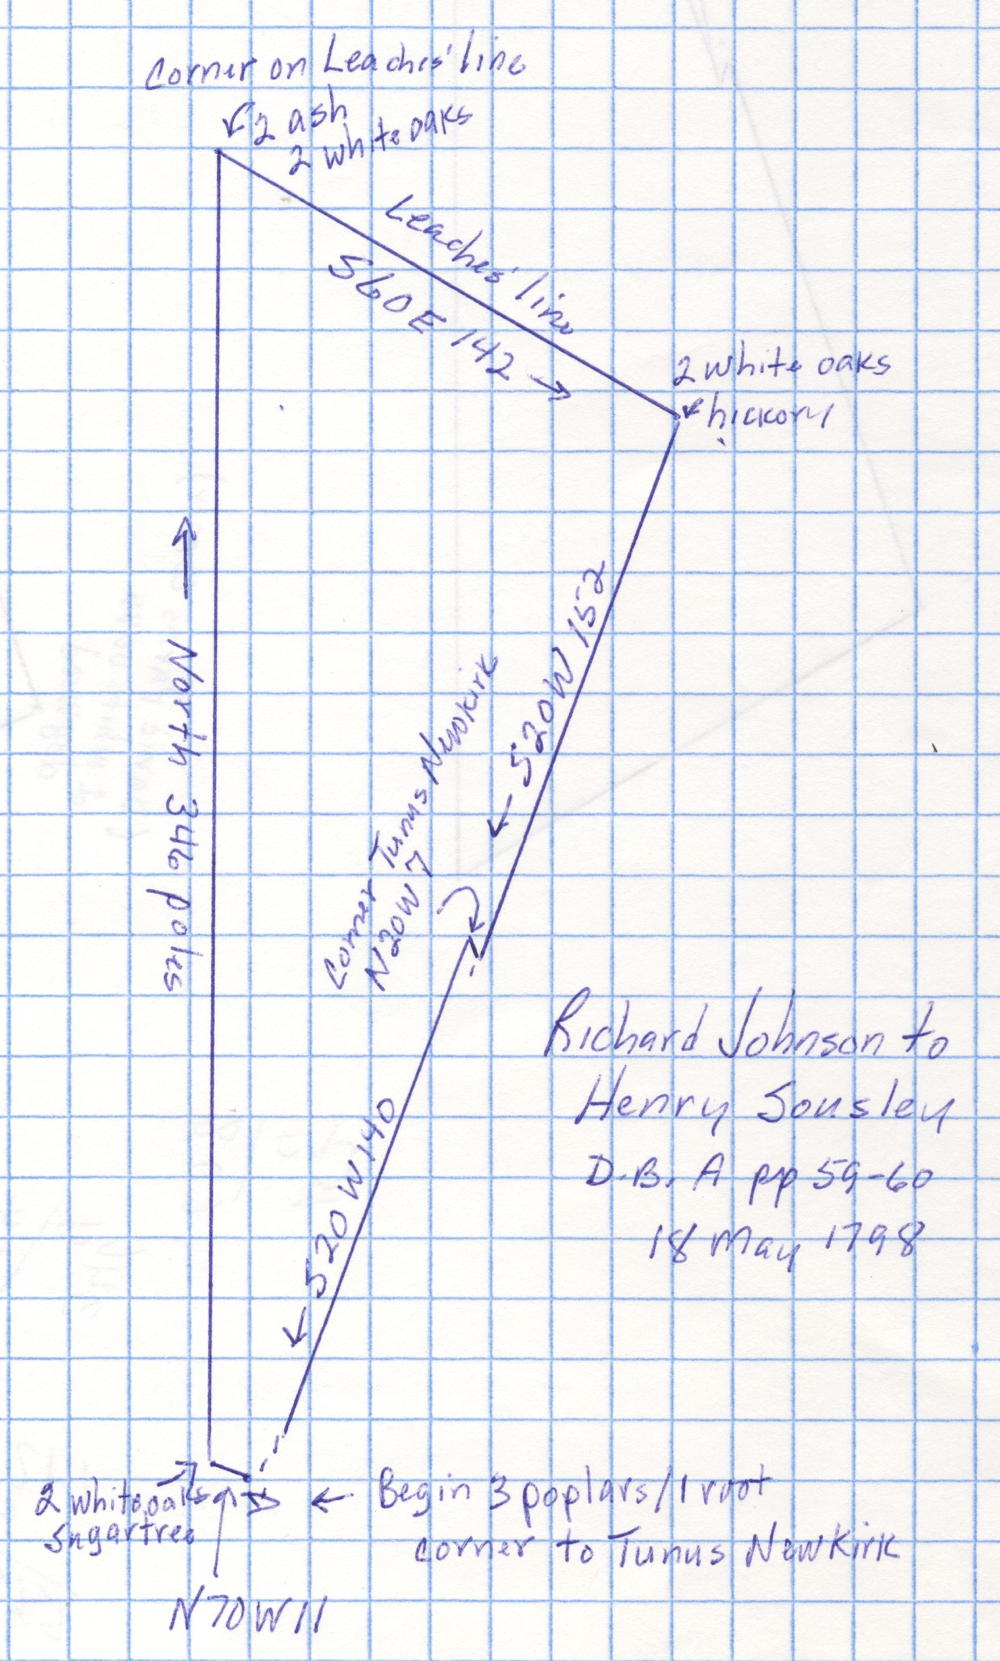 Corner on Leaches' line
2 ash
2 white oaks
Leaches' line
S60E 142
2 white oaks
hickory
North 346 poles
S20W 152
Corner Tunus Newkirk
N20W 7
S20W 140
Richard Johnson to
Henry Sousley
D.B. A pp 59-60
18 May 1798
2 white oaks
Sugartree
Begin 3 poplars/1 root
corner to Tunus Newkirk
N70W11